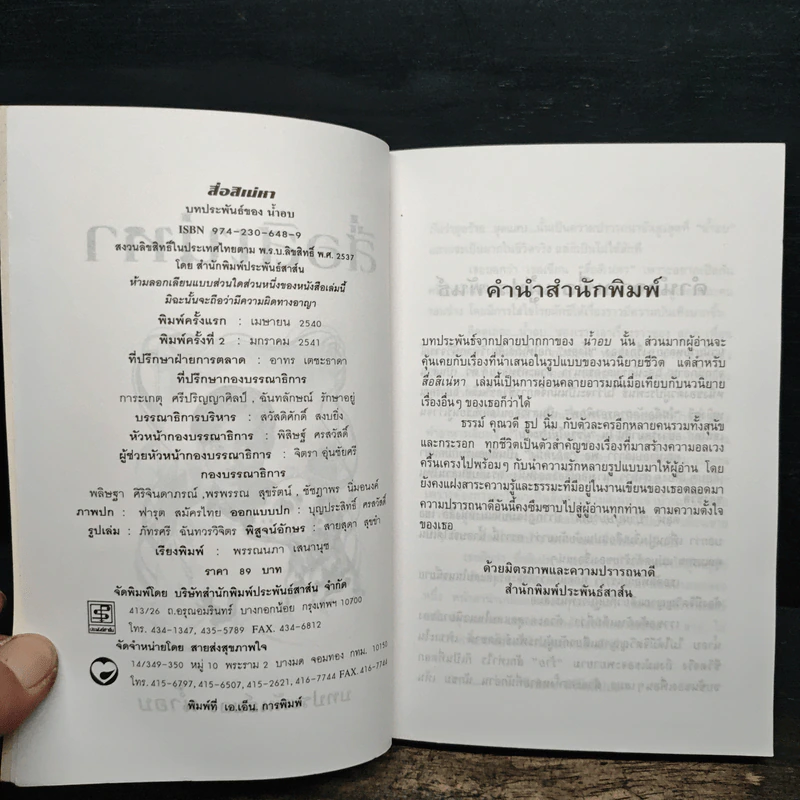 สื่อสิเน่หา
บทประพันธ์ของ น้ำอบ
ISBN 974-230-648-9
สงวนลิขสิทธิ์ในประเทศไทยตาม พ.ร.บ.ลิขสิทธิ์ พ.ศ. 2537
โดย สำนักพิมพ์ประพันธ์สาส์น
ห้ามลอกเลียนแบบส่วนใดส่วนหนึ่งของหนังสือเล่มนี้
มิฉะนั้นจะถือว่ามีความผิดทางอาญา
พิมพ์ครั้งแรก : เมษายน 2540
พิมพ์ครั้งที่ 2 : มกราคม 2541
ที่ปรึกษาฝ่ายการตลาด : อาทร เตชะธาดา
ที่ปรึกษากองบรรณาธิการ
การะเกตุ ศรีปริญญาศิลป์ , ฉันทลักษณ์ รักษาอยู่
บรรณาธิการบริหาร : สวัสดิศักดิ์ สงบยิ่ง
หัวหน้ากองบรรณาธิการ : พิสิษฐ์ ศรสวัสดิ์
ผู้ช่วยหัวหน้ากองบรรณาธิการ : จิตรา อุ่นชัยศรี
กองบรรณาธิการ
พลิษฐา ศิริจินดาภรณ์ ,พรพรรณ สุขรัตน์ , ชัชฎาพร นิมอนงค์
ภาพปก : ฟารุต สมัครไทย ออกแบบปก : บุญประสิทธิ์ ศรสวัสดิ์
รูปเล่ม : ภัทรศรี ฉันทวรวิจิตร พิสูจน์อักษร : สายสุดา สุขขำ
เรียงพิมพ์ : พรรณนภา เสนานุช
ราคา 89 บาท
จัดพิมพ์โดย บริษัทสำนักพิมพ์ประพันธ์สาส์น จำกัด
413/26 ถ.อรุณอมรินทร์ บางกอกน้อย กรุงเทพฯ 10700
โทร. 434-1347, 435-5789 FAX. 434-6812
จัดจำหน่ายโดย สายส่งสุขภาพใจ
14/349-350 หมู่ 10 พระราม 2 บางมด จอมทอง กทม. 10150
โทร. 415-6797, 415-6507, 415-2621, 416-7744 FAX. 416-7744
พิมพ์ที่ เอ.เอ็น. การพิมพ์
คำนำสำนักพิมพ์
บทประพันธ์จากปลายปากกาของ น้ำอบ นั้น ส่วนมากผู้อ่านจะ
คุ้นเคยกับเรื่องที่นำเสนอในรูปแบบของนวนิยายชีวิต แต่สำหรับ
สื่อสิเน่หา เล่มนี้เป็นการผ่อนคลายอารมณ์เมื่อเทียบกับนวนิยาย
เรื่องอื่นๆ ของเธอก็ว่าได้
ธรรม์ คุณวดี ธูป นิ้ม กับตัวละครอีกหลายคนรวมทั้งสุนัข
และกระรอก ทุกชีวิตเป็นตัวสำคัญของเรื่องที่มาสร้างความอลเวง
ครื้นเครงไปพร้อมๆ กับนำความรักหลายรูปแบบมาให้ผู้อ่าน โดย
ยังคงแฝงสาระความรู้และธรรมะที่มีอยู่ในงานเขียนของเธอตลอดมา
ความปรารถนาดีอันนี้คงซึมซาบไปสู่ผู้อ่านทุกท่าน ตามความตั้งใจ
ของเธอ
ด้วยมิตรภาพและความปรารถนาดี
สำนักพิมพ์ประพันธ์สาส์น